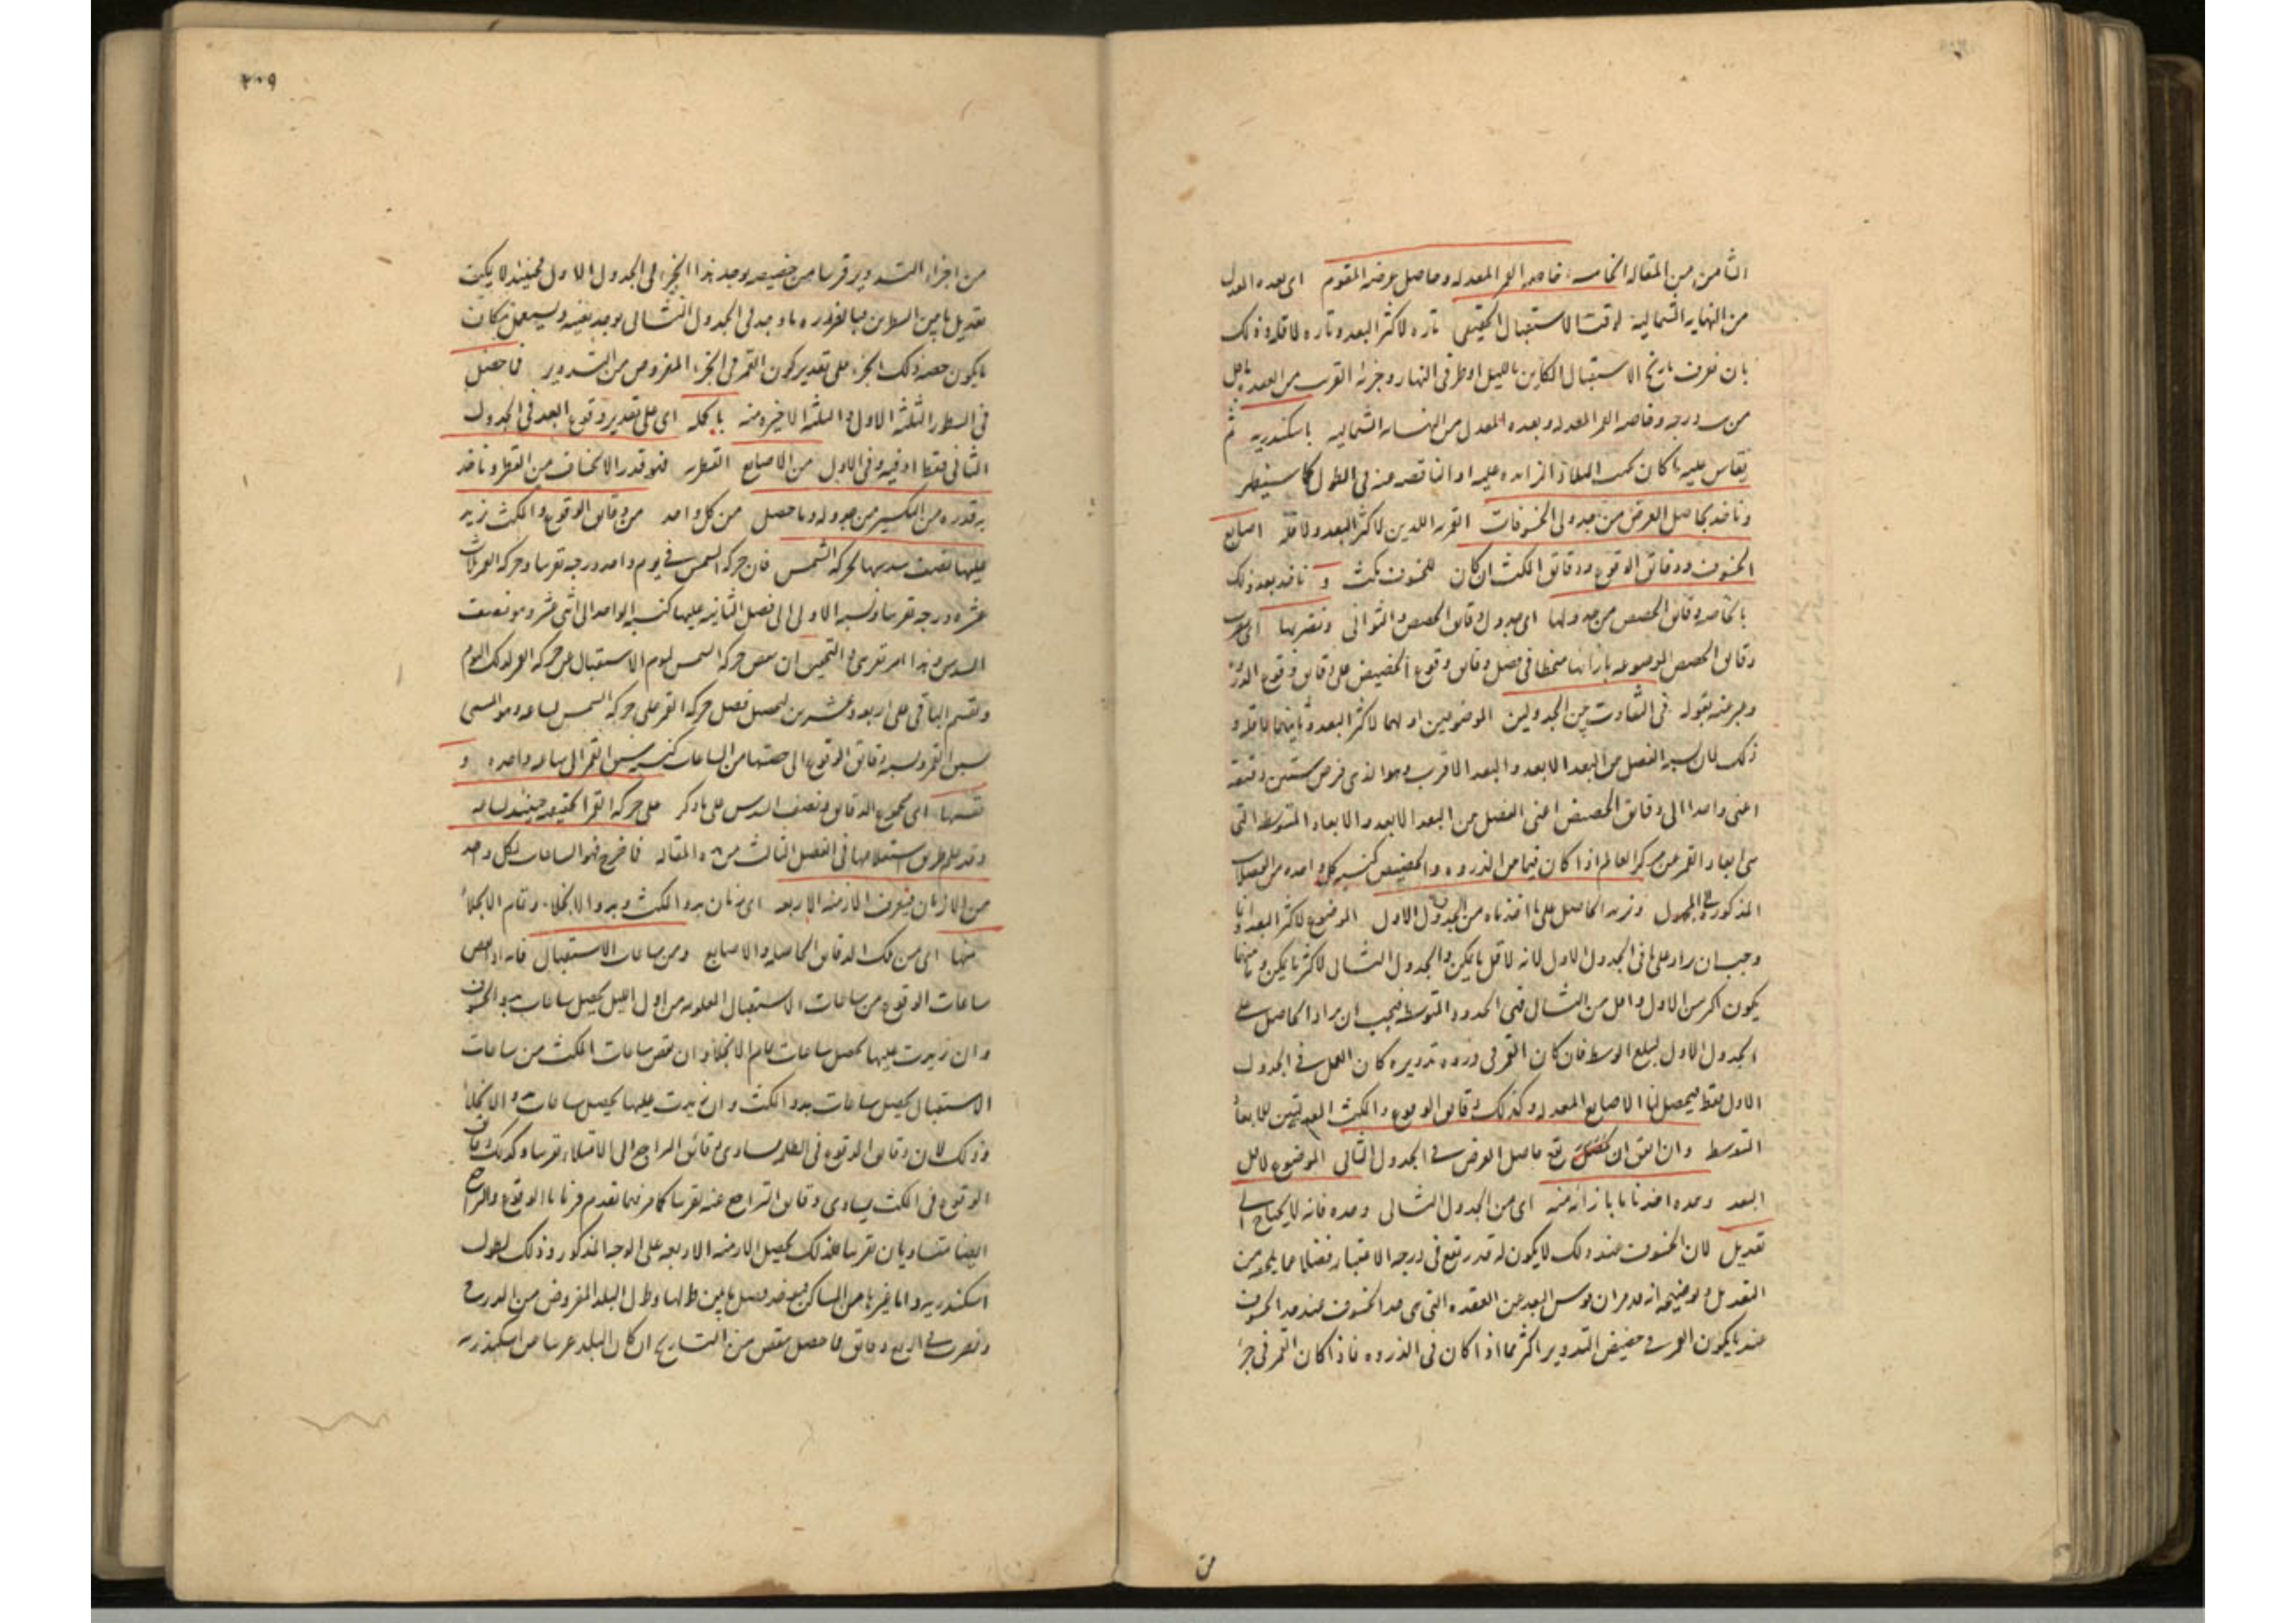 الثامن من المقاله الخامسه خاصه القمر المعدله وحاصل عرضه المقوم اى بعده المعدل
من النهايه الشماليه لوقت الاستقبال الحقيقى تاره لاكثر البعد وتاره لاقله وذلك
بان نعرف تاريخ الاستقبال الكاين بالليل او طرفى النهار وجزئه القريب من العقده باقل
درجه وخاصه القمر المعدله وبعده المعدل من النهايه الشماليه باسكندريه ثم
يقاس عليه ما كان تحت الزايده عليه او الناقصه منه فى الطول كما سيظهر
وناخذ بحاصل العرض من جدولى الخسوفات القمريه اللذين لاكثر البعد ولاقله اصابع
الخسوف ودقائق الوقوع ودقائق المكث ان كان للخسوف مكث و ناخذ بعد ذلك
بالخاصه دقائق الحصص من جدولها اى جدول دقائق الحصص والثوانى ونضربها اى نضرب
دقائق الحصص الموضوعه بازائها منحطا فى فضل دقائق وقوع الحضيض على دقائق وقوع الذروه
وعبر عنه بقوله فى التفاوت بين الجدولين الموضوعين اولهما لاكثر البعد وثانيهما لاقله و
ذلك لان نسبه الفضل بين البعد الابعد والبعد الاقرب وهو الذى فرض ستين دقيقه
اعنى واحدا الى دقائق الحصص اعنى الفضل بين البعد الابعد والابعاد المتوسطه التى
هى ابعاد القمر عن مركز العالم اذا كان فيما بين الذروه والحضيض كنسبه كل واحده من
المذكور فى الجدول ونزيد الحاصل على ما اخذناه من الجدول الاول الموضوع لاكثر البعد وانما
وجب ان يزاد على ما فى الجدول الاول لانه لاقل ما يمكن والجدول الثانى لاكثر ما يمكن وما بينهما
يكون اكثر من الاول واقل من الثانى ففى الحدود المتوسطه يجب ان يزاد الحاصل على
الجدول الاول ليبلغ الوسط فان كان القمر فى ذروه تدويره كان العمل فى الجدول
الاول فقط فيحصل لنا الاصابع المعدله وكذلك دقائق الوقوع والمكث المعدلتين للابعاد
المتوسط وان اتفق ان يقع حاصل العرض فى الجدول الثانى الموضوع لاقل
البعد وحده اخذنا ما بازائه منه اى من الجدول الثانى وحده فانه لا يحتاج الى
تعديل لان الخسوف عند ذلك لا يكون له قدر يقع فى درجه الاعتبار فضلا عما يلحقه من
التعديل وتوضيحه انه قد مر ان قوس البعد عن العقده التى هى حد الخسوف
عند ما يكون القمر فى حضيض التدوير اكثر مما اذا كان فى الذروه فاذا كان القمر فى جزء
ن
٢٠٩
من اجزاء التدوير قريبا من حضيضه وجد هذا الجزء فى الجدول الاول فحينئذ لا يمكن
تعديل ما بين السطرين فيؤخذ ما وجد فى الجدول الثانى بوحده نفسه ويستعمل مكان
ما يكون حصه ذلك الجزء على تقدير كون القمر فى الجزء المفروض من التدوير فما حصل
فى السطور الثلثه الاول والثلثه الاخيره منه بالجمله اى على تقدير وقوع البعد فى الجدول
الثانى فقط او فيه وفى الاول من الاصابع القطريه فهو قدر الانخساف من القطر وناخذ
قدره من التكسير من جدوله وما حصل من كل واحد من دقائق الوقوع والمكث نزيد
عليها نصف سدسها لحركه الشمس فان حركه الشمس فى يوم واحد درجه تقريبا وحركه القمر ثلاث
عشره درجه تقريبا ونسبه الاولى الى فضل الثانيه عليها كنسبه الواحد الى اثنى عشر وهو نصف
السدس وهذا امر تقريبى والتحقيق ان ينقص حركه الشمس ليوم الاستقبال عن حركه القمر لذلك اليوم
ونقسم الباقى على اربعه وعشرين ليحصل فضل حركه القمر على حركه الشمس لساعه وهو المسمى
سبق القمر ونسبه دقائق الوقوع الى حصتها من الساعات كنسبه سبق القمر الى ساعه واحده و
نقسمها اى مجموع الدقائق ونصف السدس على ما ذكر على حركه القمر الحقيقيه حينئذ لساعه
وقد علم طريق استعلامها فى الفصل الثالث من هذه المقاله فما خرج فهو الساعات لكل واحد
من الازمان فيعرف الازمنه الاربعه اى زمان بدو المكث وبدو الانجلاء وتمام الانجلاء
منها اى من تلك الدقائق الحاصله والاصابع ومن ساعات الاستقبال فانه اذا نقص
ساعات الوقوع من ساعات الاستقبال المعلومه من اول الليل يحصل ساعات بدو الخسوف
وان زيدت عليها يحصل ساعات تمام الانجلاء وان نقص ساعات المكث من ساعات
الاستقبال يحصل ساعات بدو المكث وان زيدت عليها يحصل ساعات بدو الانجلاء
وذلك لان دقائق الوقوع فى الظل مساوى دقائق التراجع الى الامتلاء تقريبا وكذلك دقائق
الوقوع فى المكث يساوى دقائق التراجع عنه تقريبا كما مر فيما تقدم فزمانا الوقوع والتراجع
ايضا متساويان تقريبا فلذلك يحصل الازمنه الاربعه على الوجه المذكور وذلك لطول
اسكندريه واما غيرها من المساكن فيؤخذ فضل ما بين طولها وطول البلد المفروض من الدرج
ونضرب فى اربع دقائق فما حصل ينقص من التاريخ ان كان البلد غربيا من اسكندريه